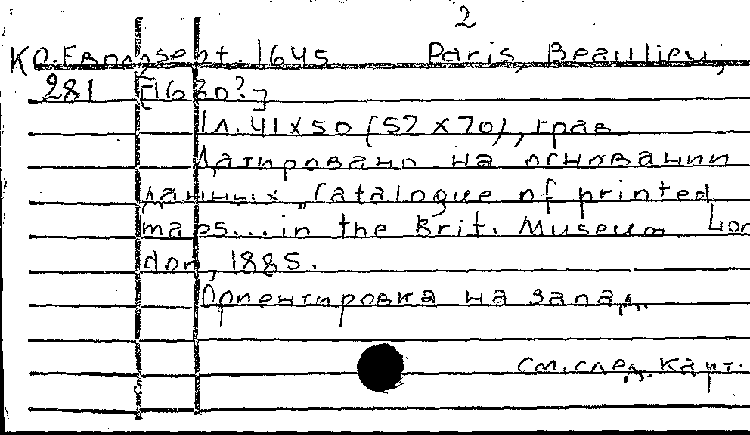 2
КО.Европ,sept. 1645 Paris, Beaulieu,
281 [1680?]
1л. 41х50 (52х70), грав.
Датировано на основании
данных „Catalogue of printed
maps... in the Brit. Museum Lon
don, 1885.
Ориентировка на запад.
См. след. карт.